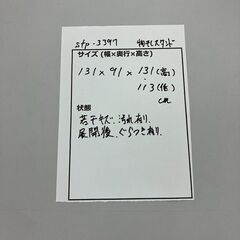 stp-3397 物干しスタンド
サイズ(幅×奥行×高さ)
131×91×131(高)
113(低)
cm
状態
若干キズ、汚れ有り、
展開後、ぐらつき有り